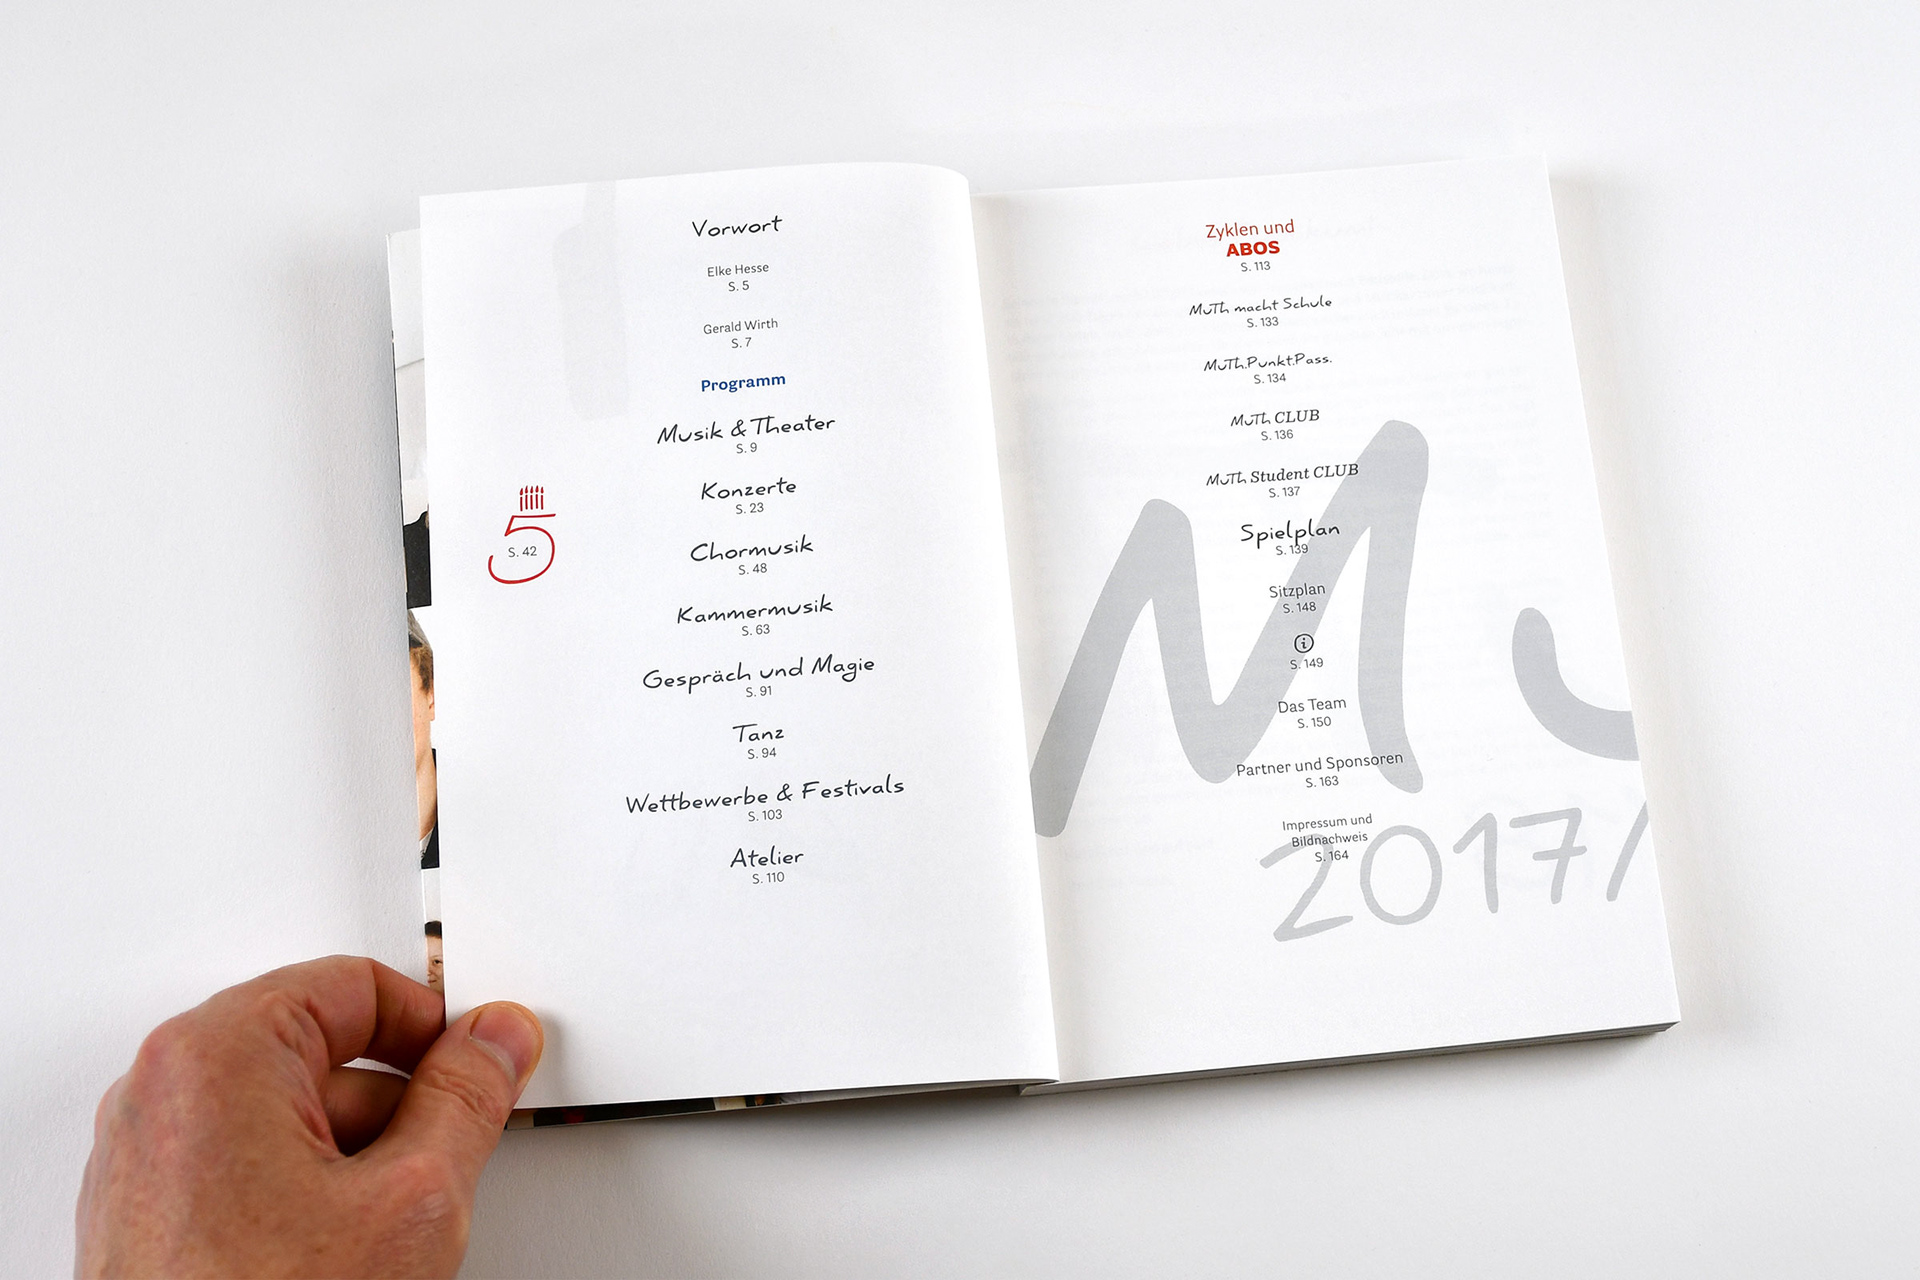 Vorwort
Elke Hesse
S. 5
Gerald Wirth
S. 7
Programm
Musik & Theater
S. 9
Konzerte
S. 23
5
S. 42
Chormusik
S. 48
Kammermusik
S. 63
Gespräch und Magie
S. 91
Tanz
S. 94
Wettbewerbe & Festivals
S. 103
Atelier
S. 110
Zyklen und
ABOS
S. 113
MuTh macht Schule
S. 133
MuTh.Punkt.Pass.
S. 134
MuTh CLUB
S. 136
MuTh Student CLUB
S. 137
Spielplan
S. 139
Sitzplan
S. 148
i
S. 149
Das Team
S. 150
Partner und Sponsoren
S. 163
Impressum und
Bildnachweis
S. 164
Mu
2017/